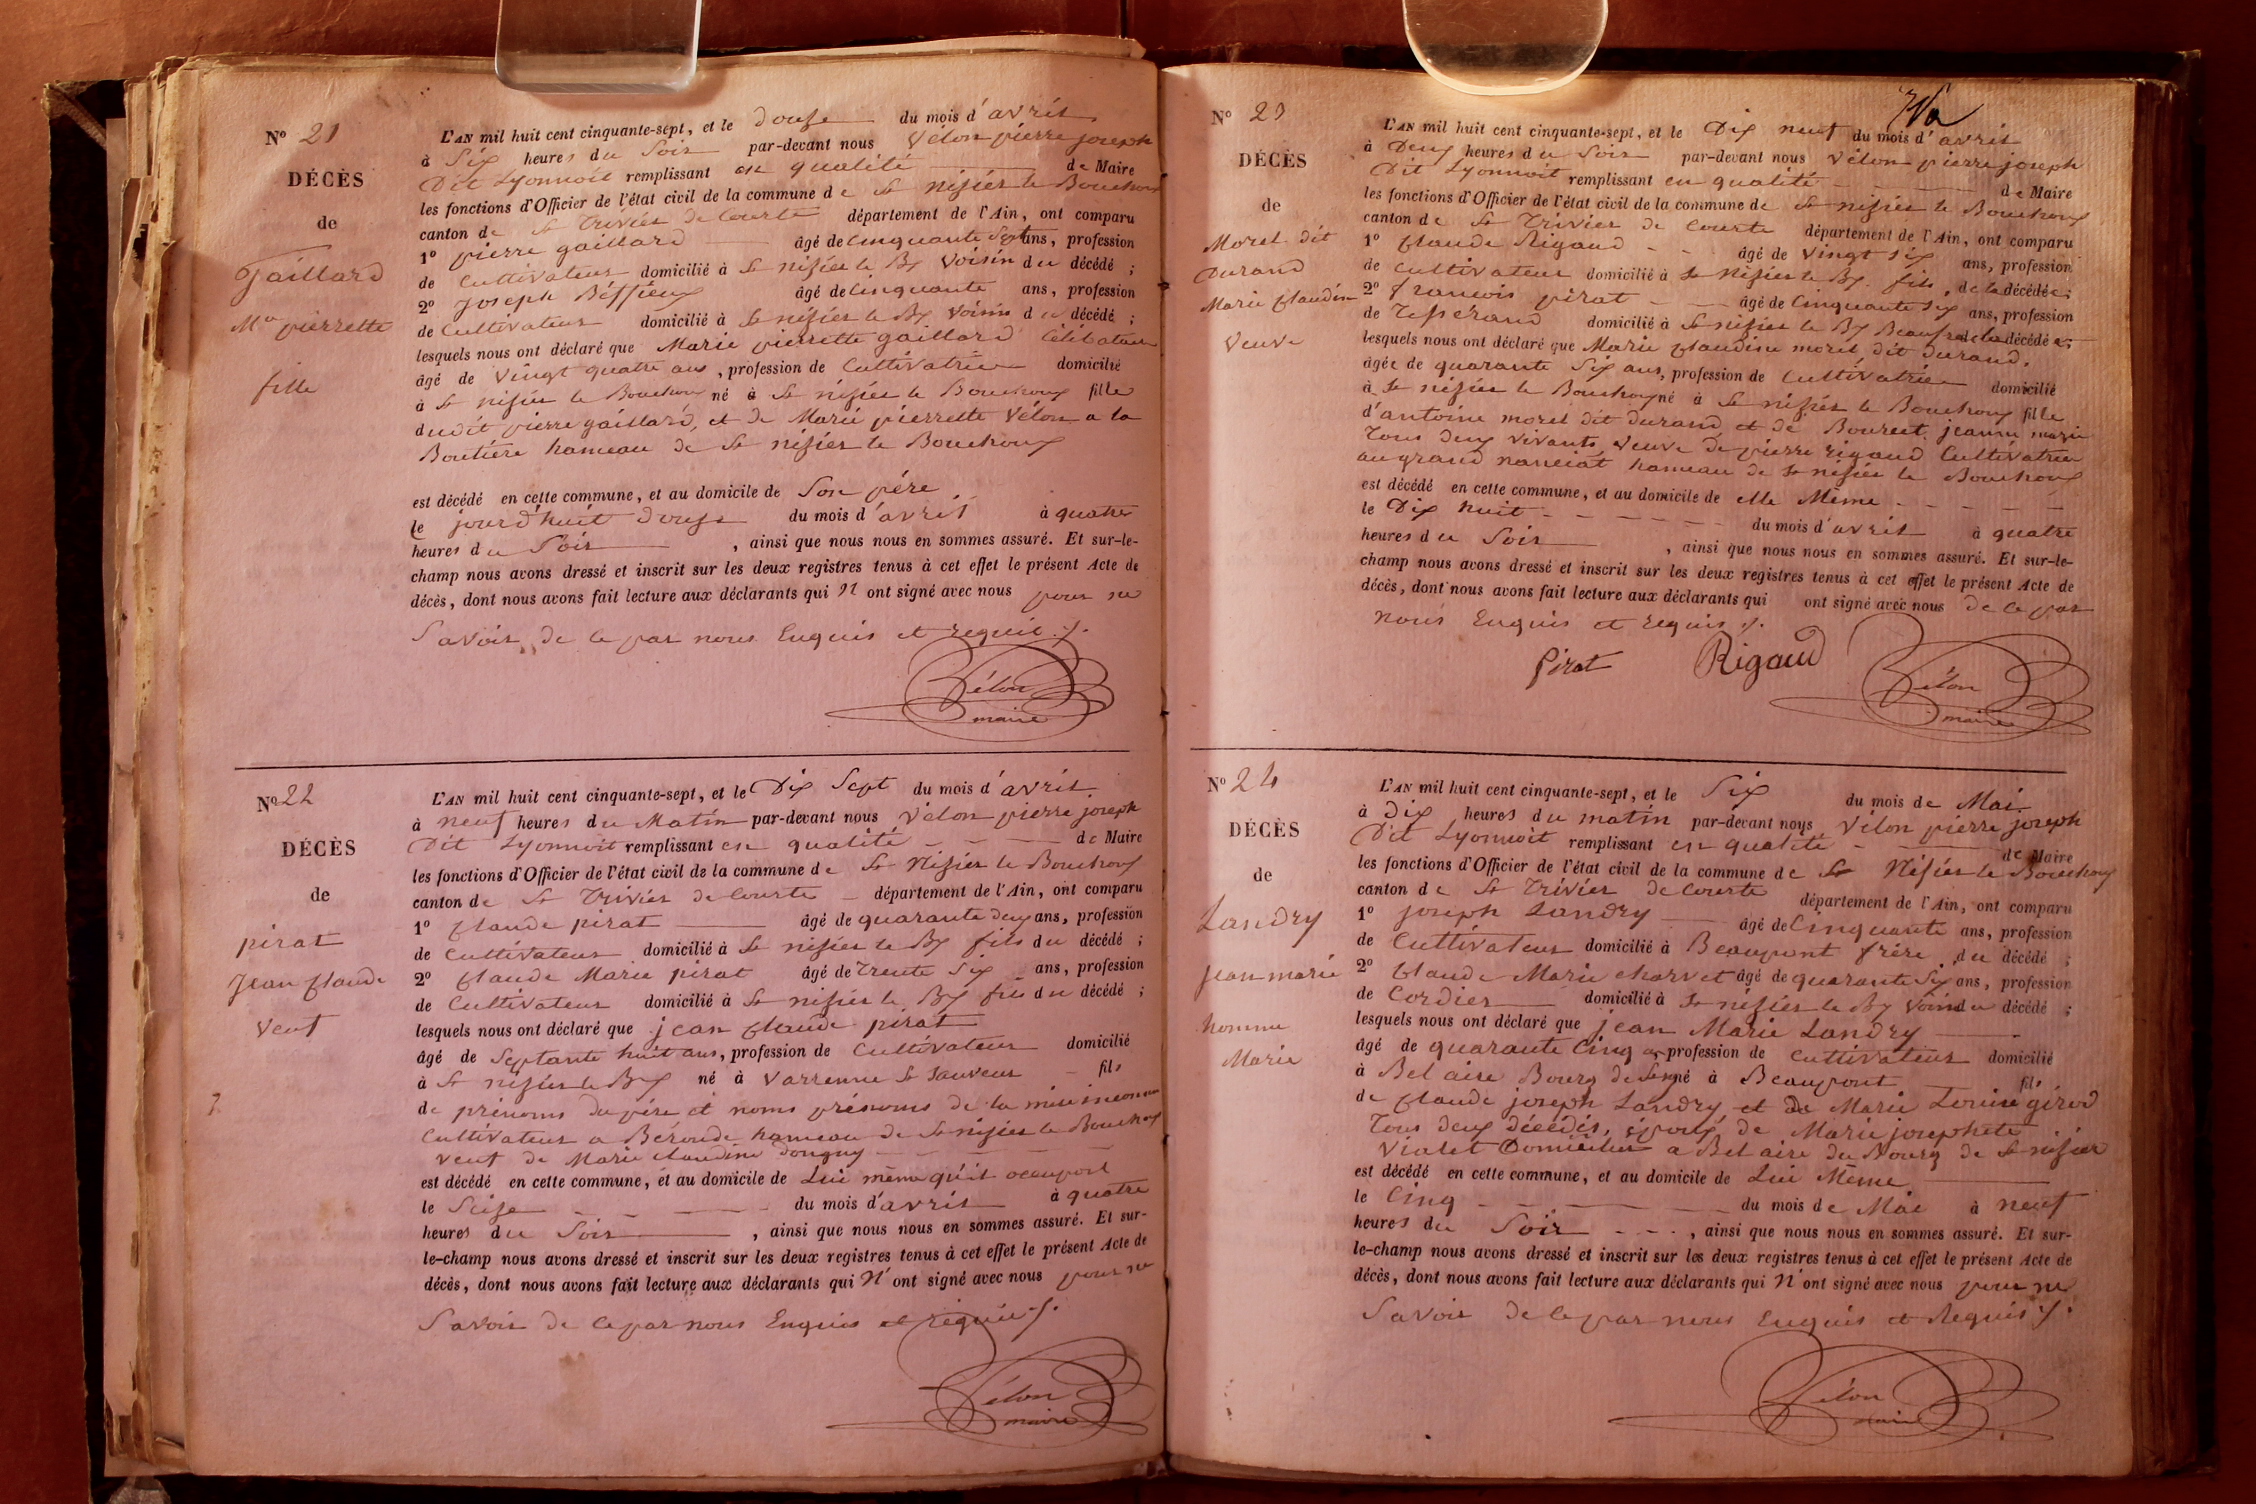 Nº 21
DÉCÈS
de
Gaillard
Mie pierrette
fille
L'AN mil huit cent cinquante-sept, et le Douze du mois d'avril
à Six heures du Soir par-devant nous Vélon pierre joseph
Dit Lyonnoit remplissant en qualité de Maire
les fonctions d'Officier de l'état civil de la commune de St nisier le Bouchoux
canton de St Trivier de Courte département de l'Ain, ont comparu
1º pierre gaillard âgé de Cinquante Sept ans, profession
de Cultivateur domicilié à St nisier le Bx Voisin du décédé ;
2º Joseph Béffieux âgé de Cinquante ans, profession
de Cultivateur domicilié à St nisier le Bx Voisin du décédé ;
lesquels nous ont déclaré que Marie pierrette gaillard Célibataire
âgé de Vingt quatre ans, profession de Cultivatrice domicilié
à St nisier le Bouchoux né à St nisier le Bouchoux fille
dudit pierre gaillard, et de Marie pierrette Vélon a la
Boutière hameau de St nisier le Bouchoux
est décédé en cette commune, et au domicile de Son père
le jourd'huit Douze du mois d'avril à quatre
heures du Soir , ainsi que nous nous en sommes assuré. Et sur-le-
champ nous avons dressé et inscrit sur les deux registres tenus à cet effet le présent Acte de
décès, dont nous avons fait lecture aux déclarants qui n'ont signé avec nous pour ne
Savoir de ce par nous Enquis et requis ./.
Vélon
maire
Nº 22
DÉCÈS
de
pirat
Jean Claude
Veuf
L'AN mil huit cent cinquante-sept, et le Dix Sept du mois d'avril
à neuf heures du Matin par-devant nous Vélon pierre joseph
Dit Lyonnoit remplissant en qualité de Maire
les fonctions d'Officier de l'état civil de la commune de St Nisier le Bouchoux
canton de St Trivier de Courte département de l'Ain, ont comparu
1º Claude pirat âgé de quarante deux ans, profession
de Cultivateur domicilié à St nisier le Bx fils du décédé ;
2º Claude Marie pirat âgé de Trente Six ans, profession
de Cultivateur domicilié à St nisier le Bx fils du décédé ;
lesquels nous ont déclaré que jean Claude pirat
âgé de Septante huit ans, profession de Cultivateur domicilié
à St nisier le Bx né à Varrenne St Sauveur fils
de prénoms du père et noms prénoms de la mère inconnu
Cultivateur a Béroude hameau de St nisier le Bouchoux
veuf de Marie claudine
est décédé en cette commune, et au domicile de Lui même qu'il occupoit
le Seize du mois d'avril à quatre
heures du Soir , ainsi que nous nous en sommes assuré. Et sur-
le-champ nous avons dressé et inscrit sur les deux registres tenus à cet effet le présent Acte de
décès, dont nous avons fait lecture aux déclarants qui n'ont signé avec nous pour ne
Savoir de ce par nous Enquis et requis ./.
Vélon
maire
Nº 23
DÉCÈS
de
Morel dit
Durand
Marie Claudine
Veuve
L'AN mil huit cent cinquante-sept, et le Dix neuf du mois d'avril
à Deux heures du Soir par-devant nous Vélon pierre joseph
Dit Lyonnoit remplissant en qualité de Maire
les fonctions d'Officier de l'état civil de la commune de St nisier le Bouchoux
canton de St Trivier de Courte département de l'Ain, ont comparu
1º Claude Rigaud âgé de Vingt Six ans, profession
de Cultivateur domicilié à St Nisier le Bx. fils de la décédée ;
2º francois pirat âgé de Cinquante Six ans, profession
de Tesserand domicilié à St nisier le Bx Beaufrere de la décédée ;
lesquels nous ont déclaré que Marie Claudine morel dit durand,
âgée de quarante Six ans, profession de Cultivatrice domicilié
à St nisier le Bouchoux né à St nisier le Bouchoux fille
d'antoine morel dit durand et de Bourcet jeanne marie
Tous deux vivants, veuve de pierre rigaud Cultivatrice
au grand nanciat hameau de St nisier le Bouchoux
est décédé en cette commune, et au domicile de elle Même
le Dix huit du mois d'avril à quatre
heures du Soir , ainsi que nous nous en sommes assuré. Et sur-le-
champ nous avons dressé et inscrit sur les deux registres tenus à cet effet le présent Acte de
décès, dont nous avons fait lecture aux déclarants qui ont signé avec nous de ce par
nous Enquis et requis ./.
Pirat Rigaud
Vélon
maire
Nº 24
DÉCÈS
de
Landry
jean marie
homme
Marié
L'AN mil huit cent cinquante-sept, et le Six du mois de Mai
à Dix heures du matin par-devant nous Vélon pierre joseph
Dit Lyonnoit remplissant en qualité de Maire
les fonctions d'Officier de l'état civil de la commune de St Nisier le Bouchoux
canton de St Trivier de Courte département de l'Ain, ont comparu
1º joseph Landry âgé de Cinquante ans, profession
de Cultivateur domicilié à Beaupont frère du décédé ;
2º Claude Marie charvet âgé de quarante Six ans, profession
de Cordier domicilié à St nisier le Bx Voisin du décédé ;
lesquels nous ont déclaré que jean Marie Landry
âgé de quarante Cinq ans profession de Cultivateur domicilié
à Bel aire Bourg de né à Beaupont fils
de Claude joseph Landry et de Marie Louise girod
Tous deux décédés, époux de Marie josephete
Violet Domicilié a Bel aire du Bourg de St nisier
est décédé en cette commune, et au domicile de Lui Même
le Cinq du mois de Mai à neuf
heures du Soir , ainsi que nous nous en sommes assuré. Et sur-
le-champ nous avons dressé et inscrit sur les deux registres tenus à cet effet le présent Acte de
décès, dont nous avons fait lecture aux déclarants qui n'ont signé avec nous pour ne
Savoir de ce par nous Enquis et Requis ./.
Vélon
maire